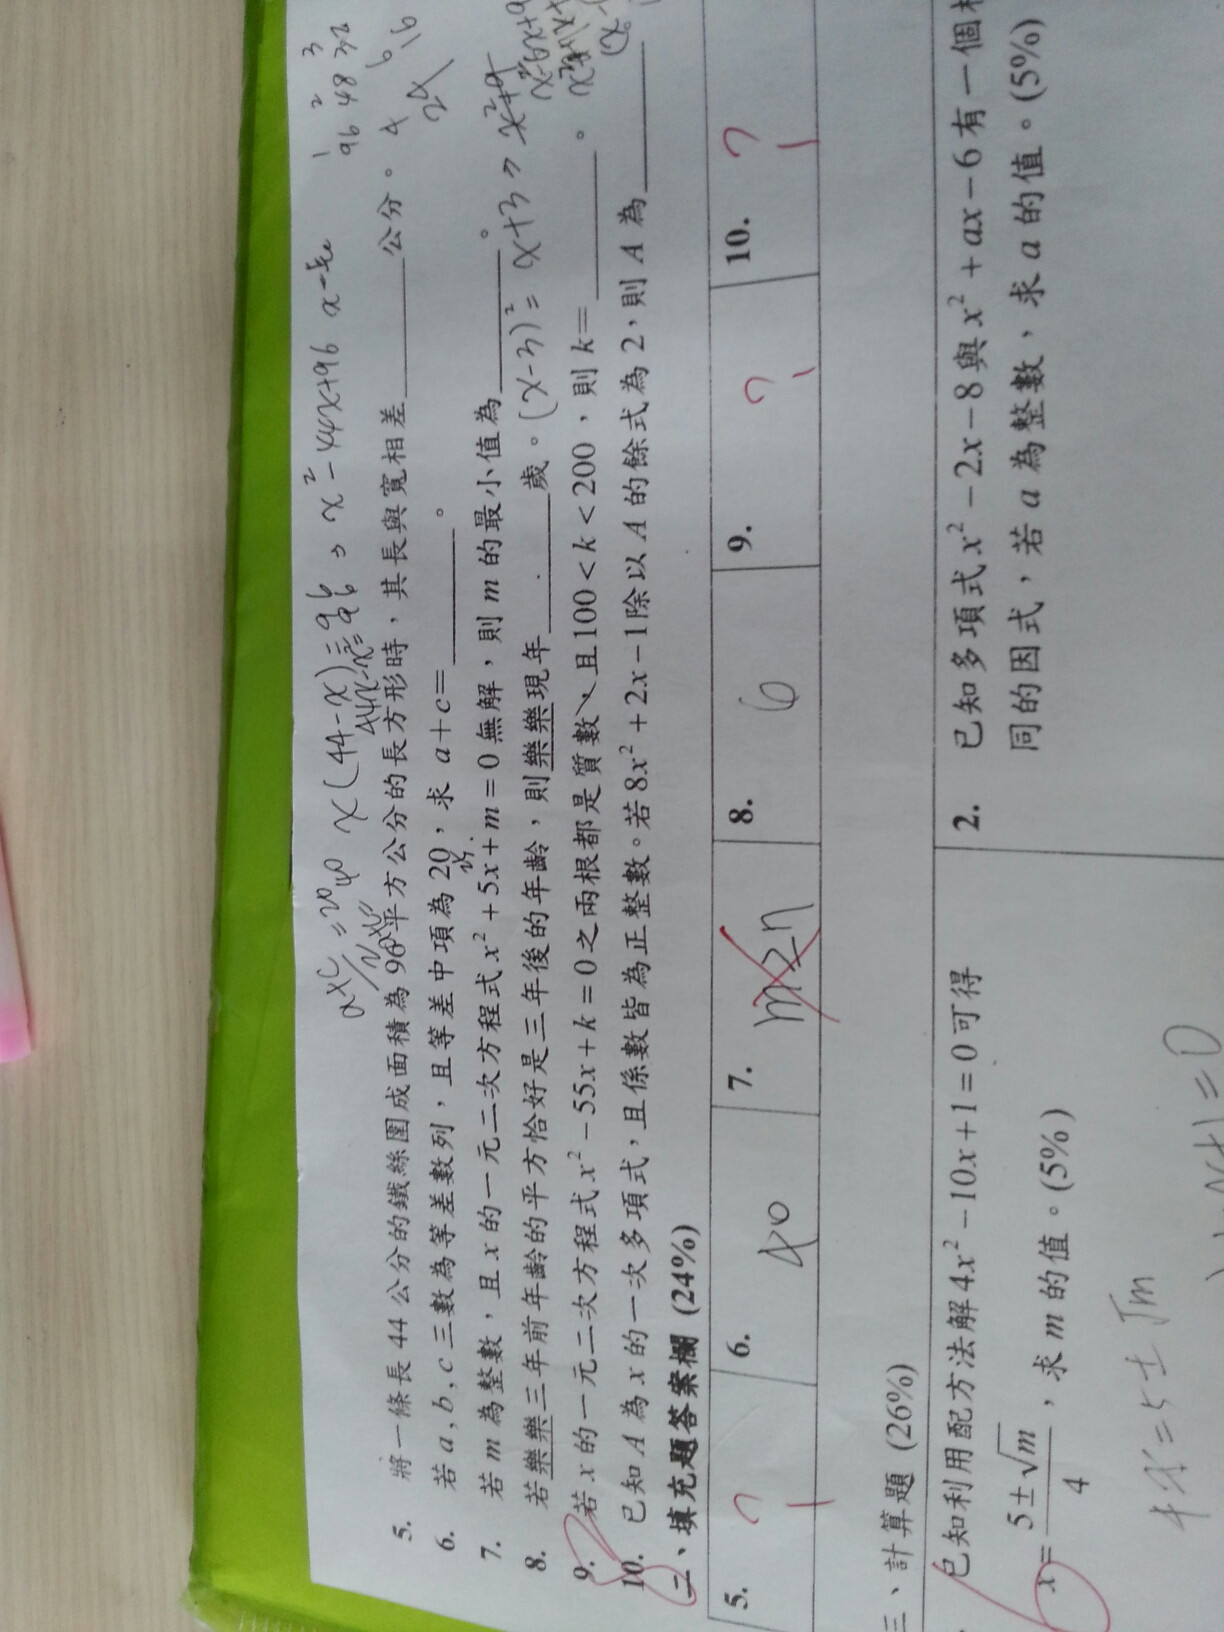 a+c/2 = 20 40 x(44-x)=96 ⇒ x²-44x+96
44x-x²=96
1 2 3
96 48 32
4 6
24 16
5. 將一條長 44 公分的鐵絲圍成面積為 96 平方公分的長方形時，其長與寬相差______公分。
6. 若 a , b , c 三數為等差數列，且等差中項為 20，求 a+c=______。
7. 若 m 為整數，且 x 的一元二次方程式 x²+5x+m=0 無解，則 m 的最小值為______。
8. 若樂樂三年前年齡的平方恰好是三年後的年齡，則樂樂現年______歲。(x-3)²= x+3 ⇒ x²+9
x²-6x+9
9. 若 x 的一元二次方程式 x²-55x+k=0 之兩根都是質數、且 100<k<200，則 k=______。
10. 已知 A 為 x 的一次多項式，且係數皆為正整數。若 8x²+2x-1 除以 A 的餘式為 2，則 A 為______
二、填充題答案欄 (24%)
5. ? 6. 40 7. 8. 6 9. ? 10. ?
三、計算題 (26%)
已知利用配方法解 4x²-10x+1=0 可得
x= (5±√m)/4，求 m 的值。(5%)
4x=5±√m
2. 已知多項式 x²-2x-8 與 x²+ax-6 有一個
同的因式，若 a 為整數，求 a 的值。(5%)